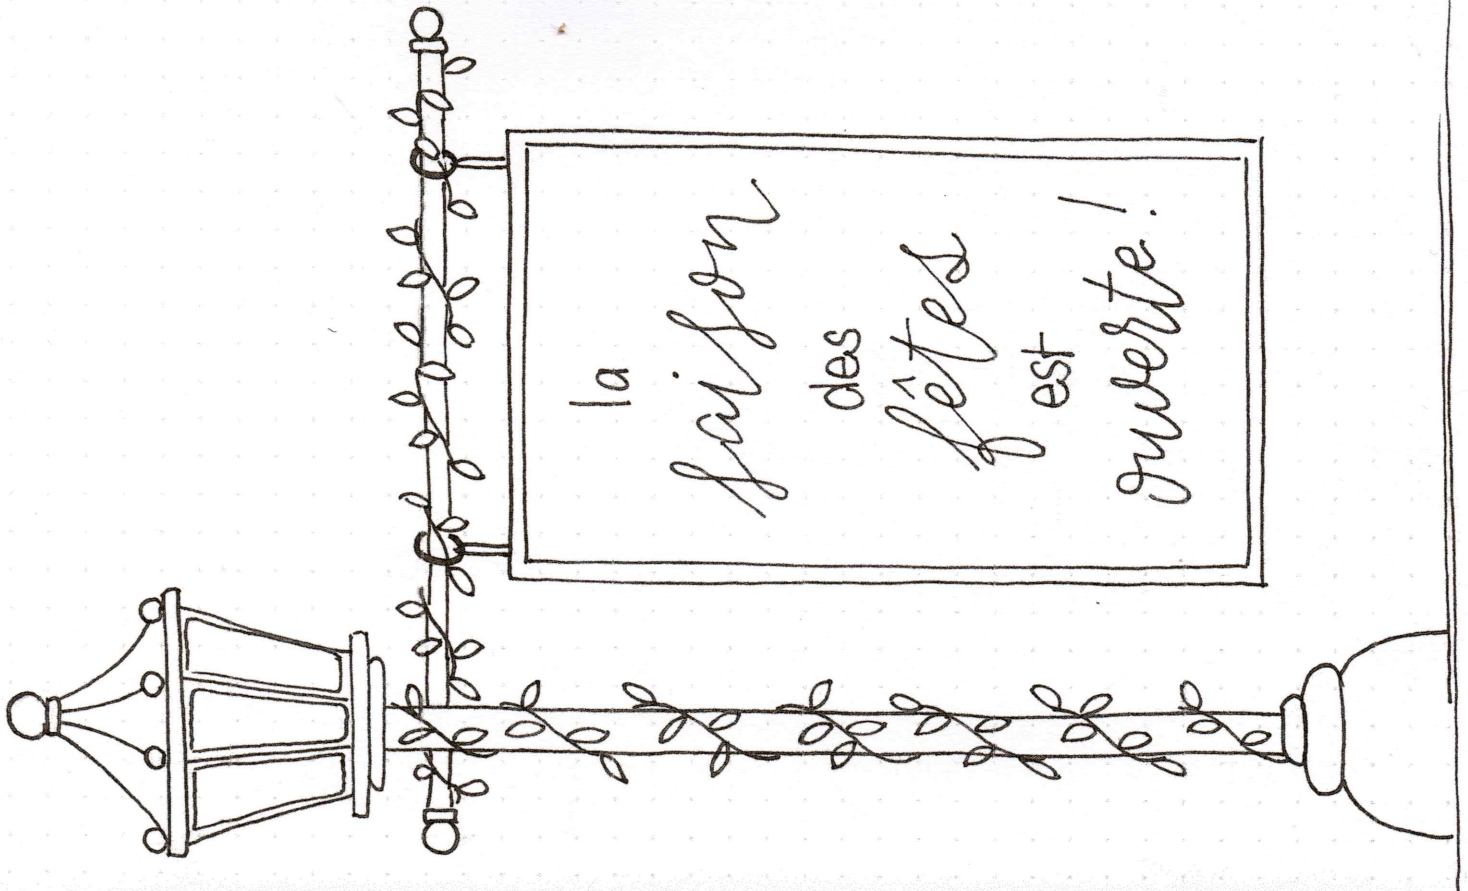 la
saison
des
fêtes
est
ouverte!